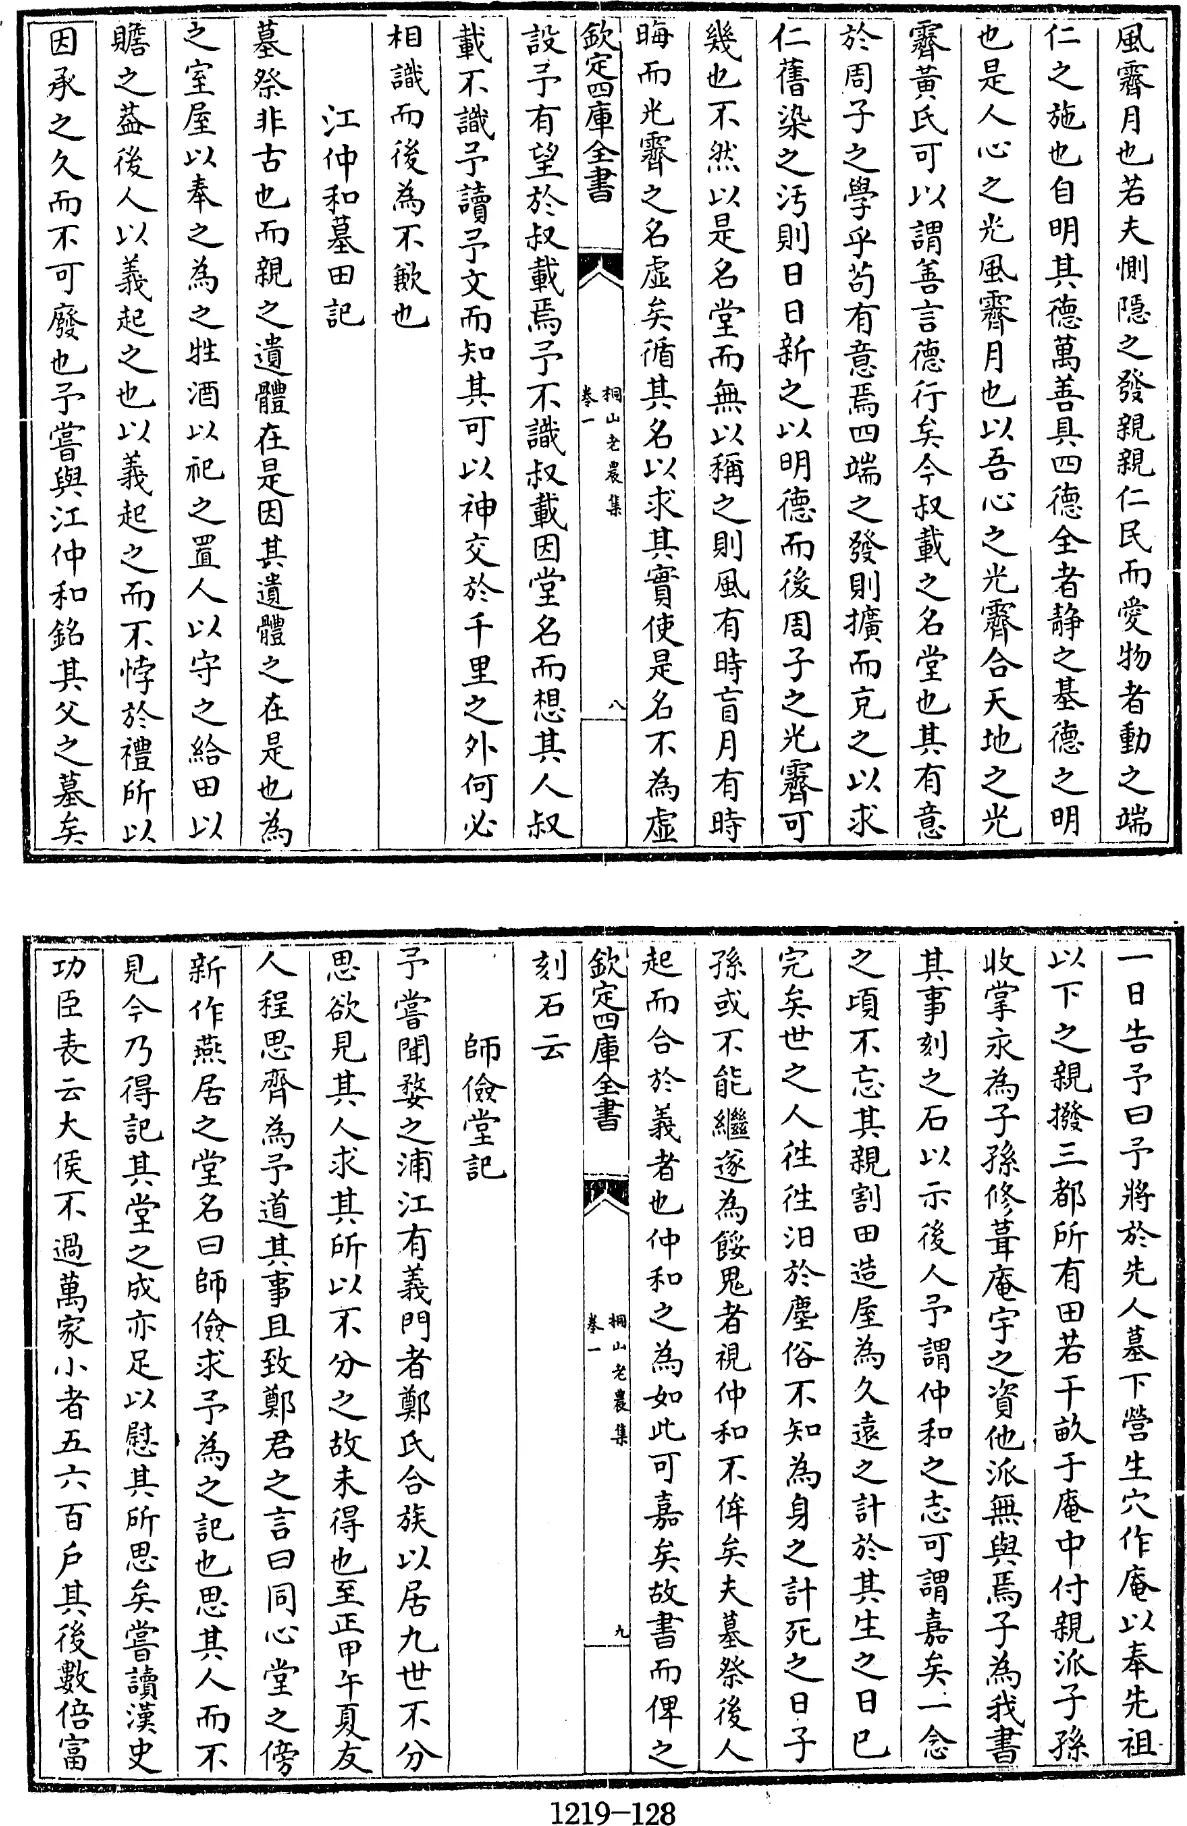 風霽月也若夫惻隠之發親親仁民而愛物者動之端
仁之施也自明其德萬善具四德全者静之基德之明
也是人心之光風霽月也以吾心之光霽合天地之光
霽黃氏可以謂善言德行矣今叔載之名堂也其有意
於周子之學乎茍有意焉四端之發則擴而充之以求
仁舊染之汚則日日新之以明德而後周子之光霽可
幾也不然以是名堂而無以稱之則風有時盲月有時
晦而光霽之名虛矣循其名以求其實使是名不為虛
欽定四庫全書
桐山老農集
卷一
八
設予有望於叔載焉予不識叔載因堂名而想其人叔
載不識予讀予文而知其可以神交於千里之外何必
相識而後為不歉也
江仲和墓田記
墓祭非古也而親之遺體在是因其遺體之在是也為
之室屋以奉之為之牲酒以祀之置人以守之給田以
贍之葢後人以義起之也以義起之而不悖於禮所以
因承之久而不可廢也予嘗與江仲和銘其父之墓矣
一日告予曰予將於先人墓下營生穴作庵以奉先祖
以下之親撥三都所有田若干畝于庵中付親派子孫
收掌永為子孫修葺庵宇之資他派無與焉子為我書
其事刻之石以示後人予謂仲和之志可謂嘉矣一念
之頃不忘其親割田造屋為久遠之計於其生之日已
完矣世之人徃徃汨於塵俗不知為身之計死之日子
孫或不能繼遂為餒鬼者視仲和不侔矣夫墓祭後人
起而合於義者也仲和之為如此可嘉矣故書而俾之
欽定四庫全書
桐山老農集
卷一
九
刻石云
師儉堂記
予嘗聞婺之浦江有義門者鄭氏合族以居九世不分
思欲見其人求其所以不分之故未得也至正甲午夏友
人程思齊為予道其事且致鄭君之言曰同心堂之傍
新作燕居之堂名曰師儉求予為之記也思其人而不
見今乃得記其堂之成亦足以慰其所思矣嘗讀漢史
功臣表云大侯不過萬家小者五六百戶其後數倍富
1219-128